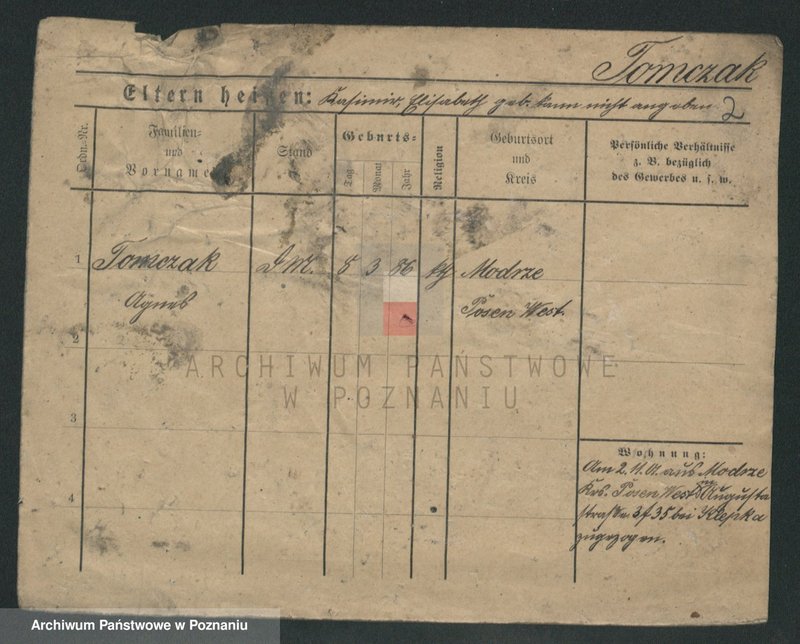 Tomczak
Eltern heißen: Kasimir, Elisabeth geb. kann nicht angeben 2
Ordn.-Nr.
Familien-
und
Vorname
Stand
Geburts-
Tag
Monat
Jahr
Religion
Geburtsort
und
Kreis
Persönliche Verhältnisse
z. B. bezüglich
des Gewerbes u. s. w.
1 Tomczak D. M. 5 3 86 kth Modrze
Agnes Posen West.
2
ARCHIWUM PAŃSTWOWE
W POZNANIU
3
4
Wohnung:
Am 2. 11. 01. aus Modrze
Krs. Posen West Augusta
straße 3 f 35 bei Klepka
zugezogen.
Archiwum Państwowe w Poznaniu